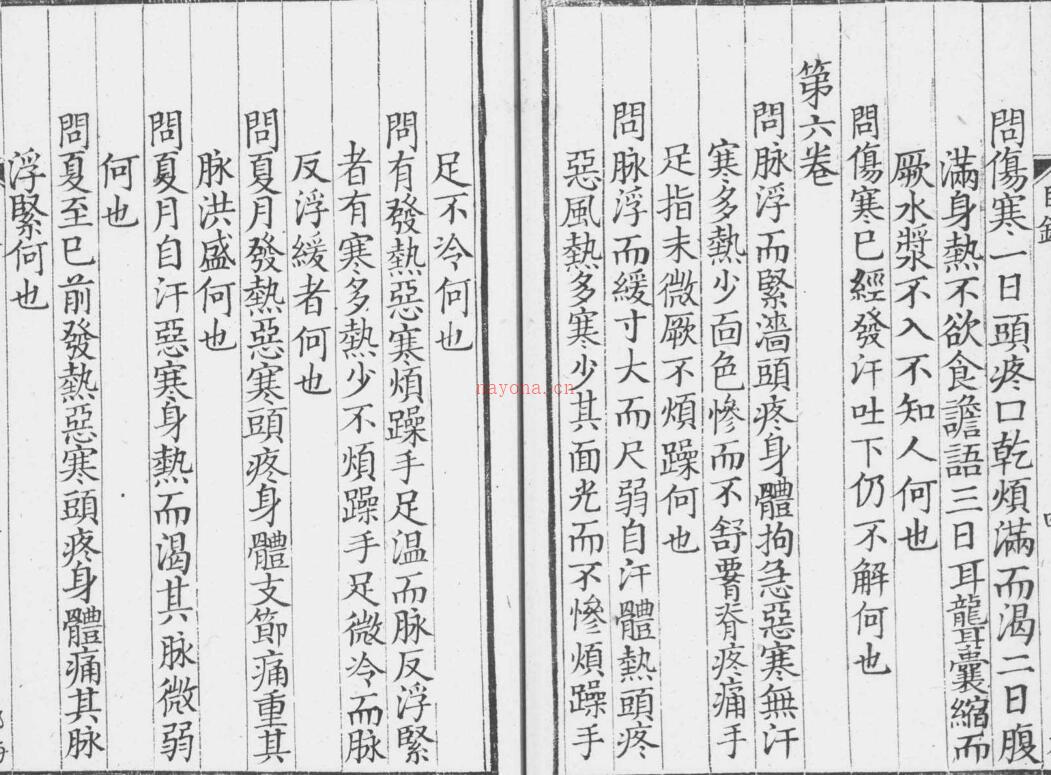 問傷寒一日頭疼口乾煩滿而渴二日腹
滿身熱不欲食譫語三日耳聾囊縮而
厥水漿不入不知人何也
問傷寒已經發汗吐下仍不解何也
第六卷
問脉浮而緊濇頭疼身體拘急惡寒無汗
寒多熱少面色慘而不舒腰脊疼痛手
足指末微厥不煩躁何也
問脉浮而緩寸大而尺弱自汗體熱頭疼
惡風熱多寒少其面光而不慘煩躁手
足不冷何也
問有發熱惡寒煩躁手足温而脉反浮緊
者有寒多熱少不煩躁手足微冷而脉
反浮緩者何也
問夏月發熱惡寒頭疼身體支節痛重其
脉洪盛何也
問夏月自汗惡寒身熱而渴其脉微弱
何也
問夏至巳前發熱惡寒頭疼身體痛其脉
浮緊何也
nayona.cn